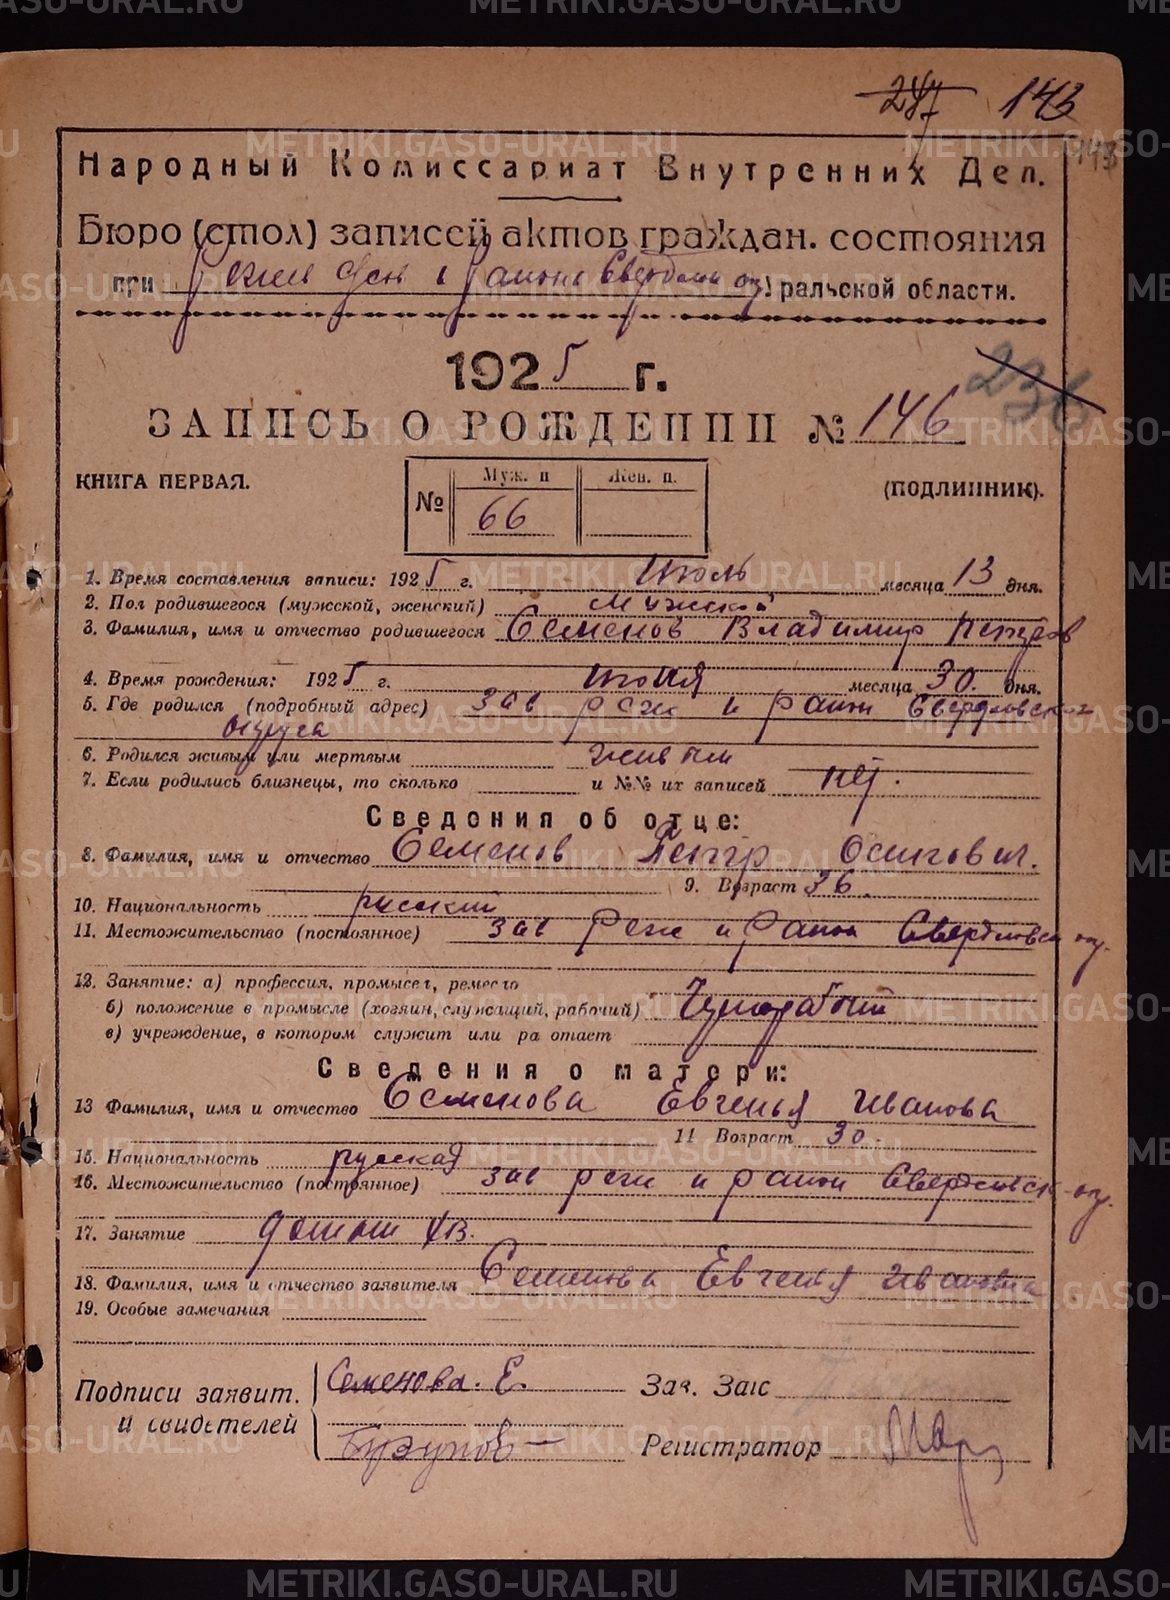 247 143
143
Народный Комиссариат Внутренних Дел.
Бюро (стол) записей актов граждан. состояния
при Район Свердлов ок Уральской области.
1925 г.
236
ЗАПИСЬ О РОЖДЕНИИ № 146
КНИГА ПЕРВАЯ. (ПОДЛИННИК).
№ Муж. п Жен. п.
66
1. Время составления записи: 1925 г. Июль месяца 13 дня.
2. Пол родившегося (мужской, женский) Мужской
3. Фамилия, имя и отчество родившегося Семенов Владимир Петров
4. Время рождения: 1925 г. Июня месяца 30. дня.
5. Где родился (подробный адрес) зав реж и район Свердловског
округа
6. Родился живым или мертвым живым
7. Если родились близнецы, то сколько и №№ их записей нет.
Сведения об отце:
8. Фамилия, имя и отчество Семенов Петр Осипович.
9. Возраст 36.
10. Национальность русский
11. Местожительство (постоянное) зав Реж и Район Свердловск ок.
12. Занятие: а) профессия, промысел, ремесло
б) положение в промысле (хозяин, служащий, рабочий)
в) учреждение, в котором служит или ра отает
Сведения о матери:
13 Фамилия, имя и отчество Семенова Евгенья Иванова
14 Возраст 30.
15. Национальность русская
16. Местожительство (постоянное) зав реж и район Свердловск ок.
17. Занятие домаш хоз.
18. Фамилия, имя и отчество заявителя Семенова Евгенья Ивановна
19. Особые замечания
Подписи заявит. Семенова. Е. Зав. Загс
и свидетелей Регистратор
METRIKI.GASO-URAL.RU